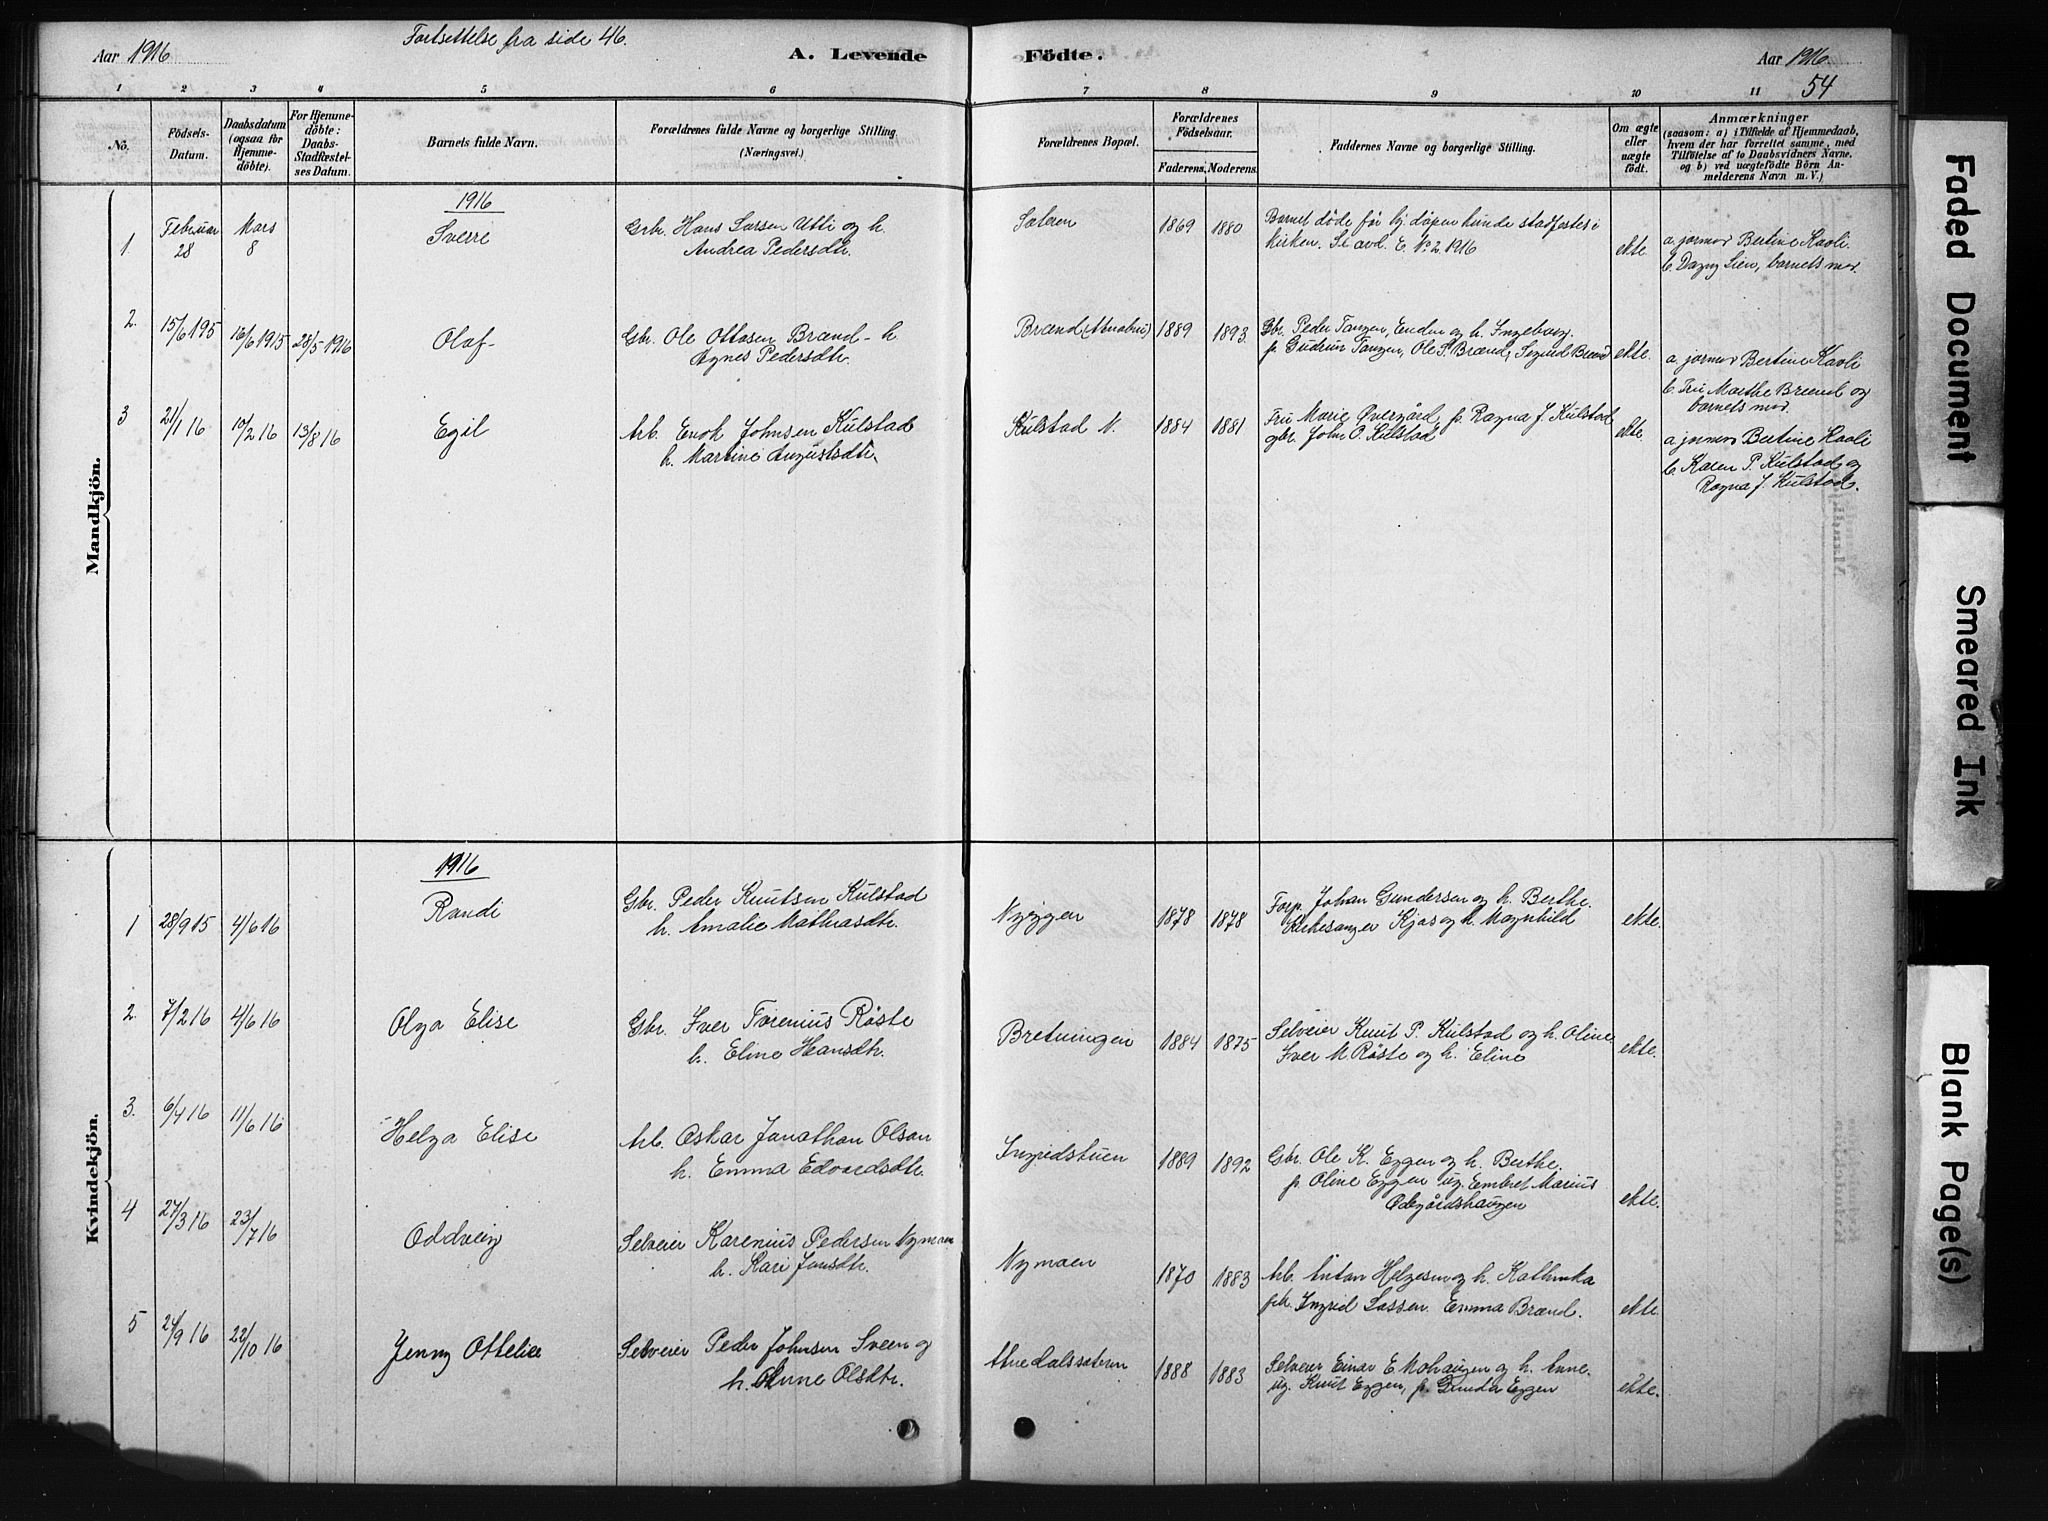 Fortsettelse fra side 46.
Aar 1916
A. Levende
Födte.
Aar 1916
54
1 2 3 4 5 6 7 8 9 10 11
No.
Födsels-
Datum.
Daabsdatum
(ogsaa for
Hjemme-
döbte).
For Hjemme-
döbte:
Daabs-
Stadfæstel-
ses Datum.
Barnets fulde Navn.
Forældrenes fulde Navne og borgerlige Stilling.
(Næringsvei.)
Forældrenes Bopæl.
Forældrenes
Födselsaar.
Faderens. Moderens.
Faddernes Navne og borgerlige Stilling.
Om ægte
eller
uægte
födt.
Anmærkninger
(saasom: a) i Tilfælde af Hjemmedaab,
hvem der har forrettet samme, med
Tilföielse af to Daabsvidners Navne,
og b) ved uægtefödte Börn An-
melderens Navn m. V.)
Mandkjön.
1916
1. Februar 28 Mars 8 Sverre
Gbr. Hans Larsen Utti og h.
Andrea Pedersdtr.
Sæteren 1869 1880
Barnet døde før hj.døpen kunde stadfestes i
kirken. Se avd. E. No 2 1916
ekte.
a. jormor Bertine Kaoli.
b. Dagny Lien, barnets mor.
2. 15/6 195 16/6 1915 28/5 1916 Olaf
Gbr. Ole Ottosen Brænd - h.
Agnes Pedersdtr.
Brænd 1889 1893
Gbr. Peder Tangen, Enden og h. Ingeborg.
p. Gudrun Tangen, Ole P. Brænd, Sigurd Brænd
ekte.
a. jormor Bertine Kaoli
b. Fru Marthe Brænd og
barnets mor.
3 21/1 16 10/2 16 13/8 16 Egil
Arb. Enok Johnsen Kulstad
h. Martine Augustsdtr.
Kulstad N. 1884 1881
Fru Marie Øvergård, p. Ragna J. Kulstad
gbr. John O. Kulstad
ekte.
a. jormor Bertine Kaoli
b. Karen P. Kulstad og
Ragna J. Kulstad.
Kvindekjön.
1916
1 28/9 15 4/6 16 Randi
Gbr. Peder Knutsen Kulstad
h. Amalie Mathiasdtr.
Nyeggen 1878 1878
Forp. Johan Gundersen og h. Berthe.
Kirkesanger Kjos og h. Magnhild
ekte.
2. 7/2 16 4/6 16 Olga Elise
Gbr. Iver Torenius Røste
h. Eline Hansdtr.
Bretningen 1884 1875
Selveier Knut P. Kulstad og h. Oline.
Iver M. Røste og h. Eline
ekte.
3. 6/4 16 11/6 16 Helga Elise
Arb. Oskar Jonathan Olson
h. Emma Edvardsdtr.
Ingridstuen 1889 1892
Gbr. Ole K. Eggen og h. Berthe.
p. Oline Eggen ug. Embret Marius
Ødegårdshaugen
ekte.
4 27/3 16 23/7 16 Oddveig
Selveier Karenius Pedersen Nymoen
h. Kari Jonsdtr.
Nymoen 1870 1883
Arb. Anton Helgesen og h. Kathinka
Ingrid Lassen. Emma Brænd.
ekte.
5 24/9 16 22/10 16 Jenny Ottelie
Selveier Peder Johnsen Sveen og
h. Anne Olsdtr.
1888 1883
Selveier Einar E. Mohaugen og h. Anne.
ug. Knut Eggen, p. Gunda Eggen
ekte.
Faded Document
Smeared Ink
Blank Page(s)